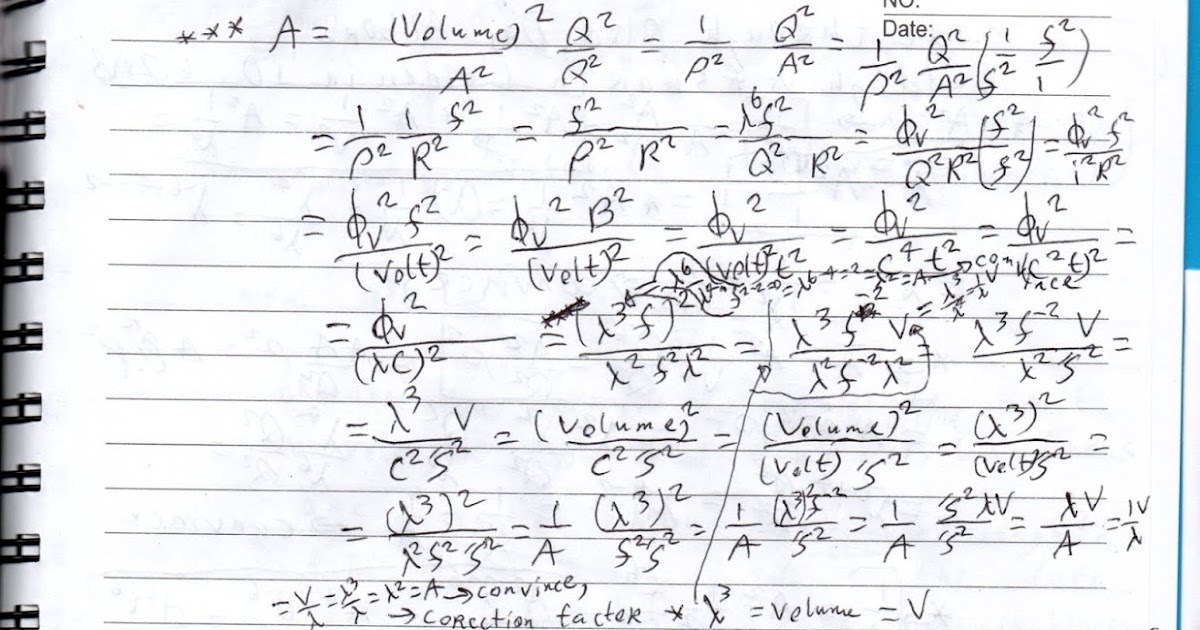 NO.
Date:
*** A = (Volume)²/A² Q²/Q² = 1/ρ² Q²/A² = 1/ρ² Q²/A² (1/f² f²/1)
= 1/ρ² 1/R² f² = f²/(ρ² R²) = λ⁶f²/(Q² R²) = ϕᵥ²/(Q²R²) (f²/f²) = ϕᵥ² f²/(i²R²)
= ϕᵥ² f²/(Volt)² = ϕᵥ² B²/(Volt)² = ϕᵥ²/((Volt)² t²) = ϕᵥ²/(C⁴ t²) = ϕᵥ²/(C² t)² =
= ϕᵥ²/(λC)² = (λ³ f)²/(λ² f² λ²) = λ³ f⁻² V/(λ² f⁻² λ²) = λ³ f⁻² V/(λ² f²) =
= λ³ V/(C² f²) = (Volume)²/(C² f²) = (Volume)²/((Volt) f²) = (λ³)²/((Volt) f²) =
= (λ³)²/(λ² f² f²) = 1/A (λ³)²/(f² f²) = 1/A (λ³)² f⁻²/f² = 1/A f² λV/f² = λV/A = 1V/λ
= V/λ = λ³/λ = λ² = A → convince,
→ corection factor * λ³ = Volume = V